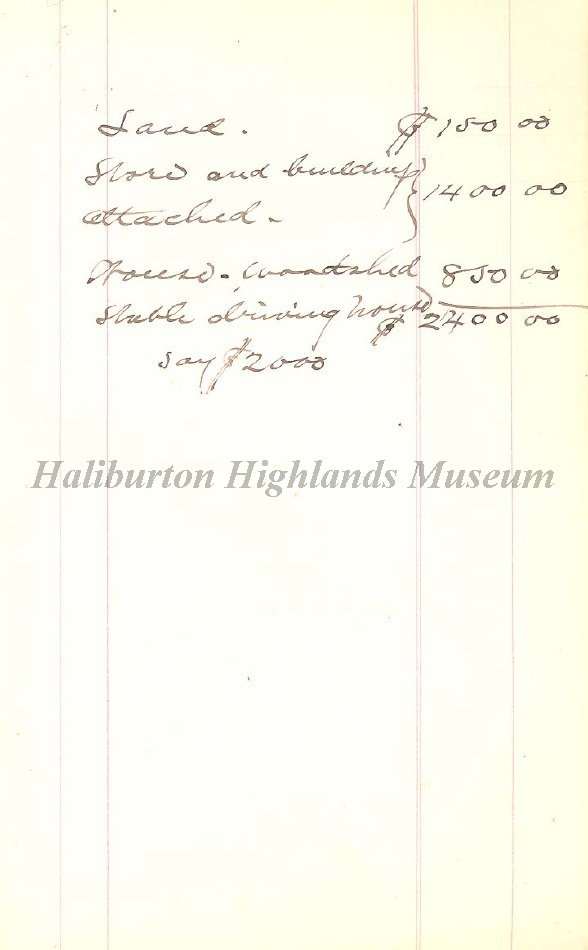 Land. $150 00
Store and building
attached - } 1400 00
House - woodshed 850 00
Stable driving house $2400 00
say $2000
Haliburton Highlands Museum